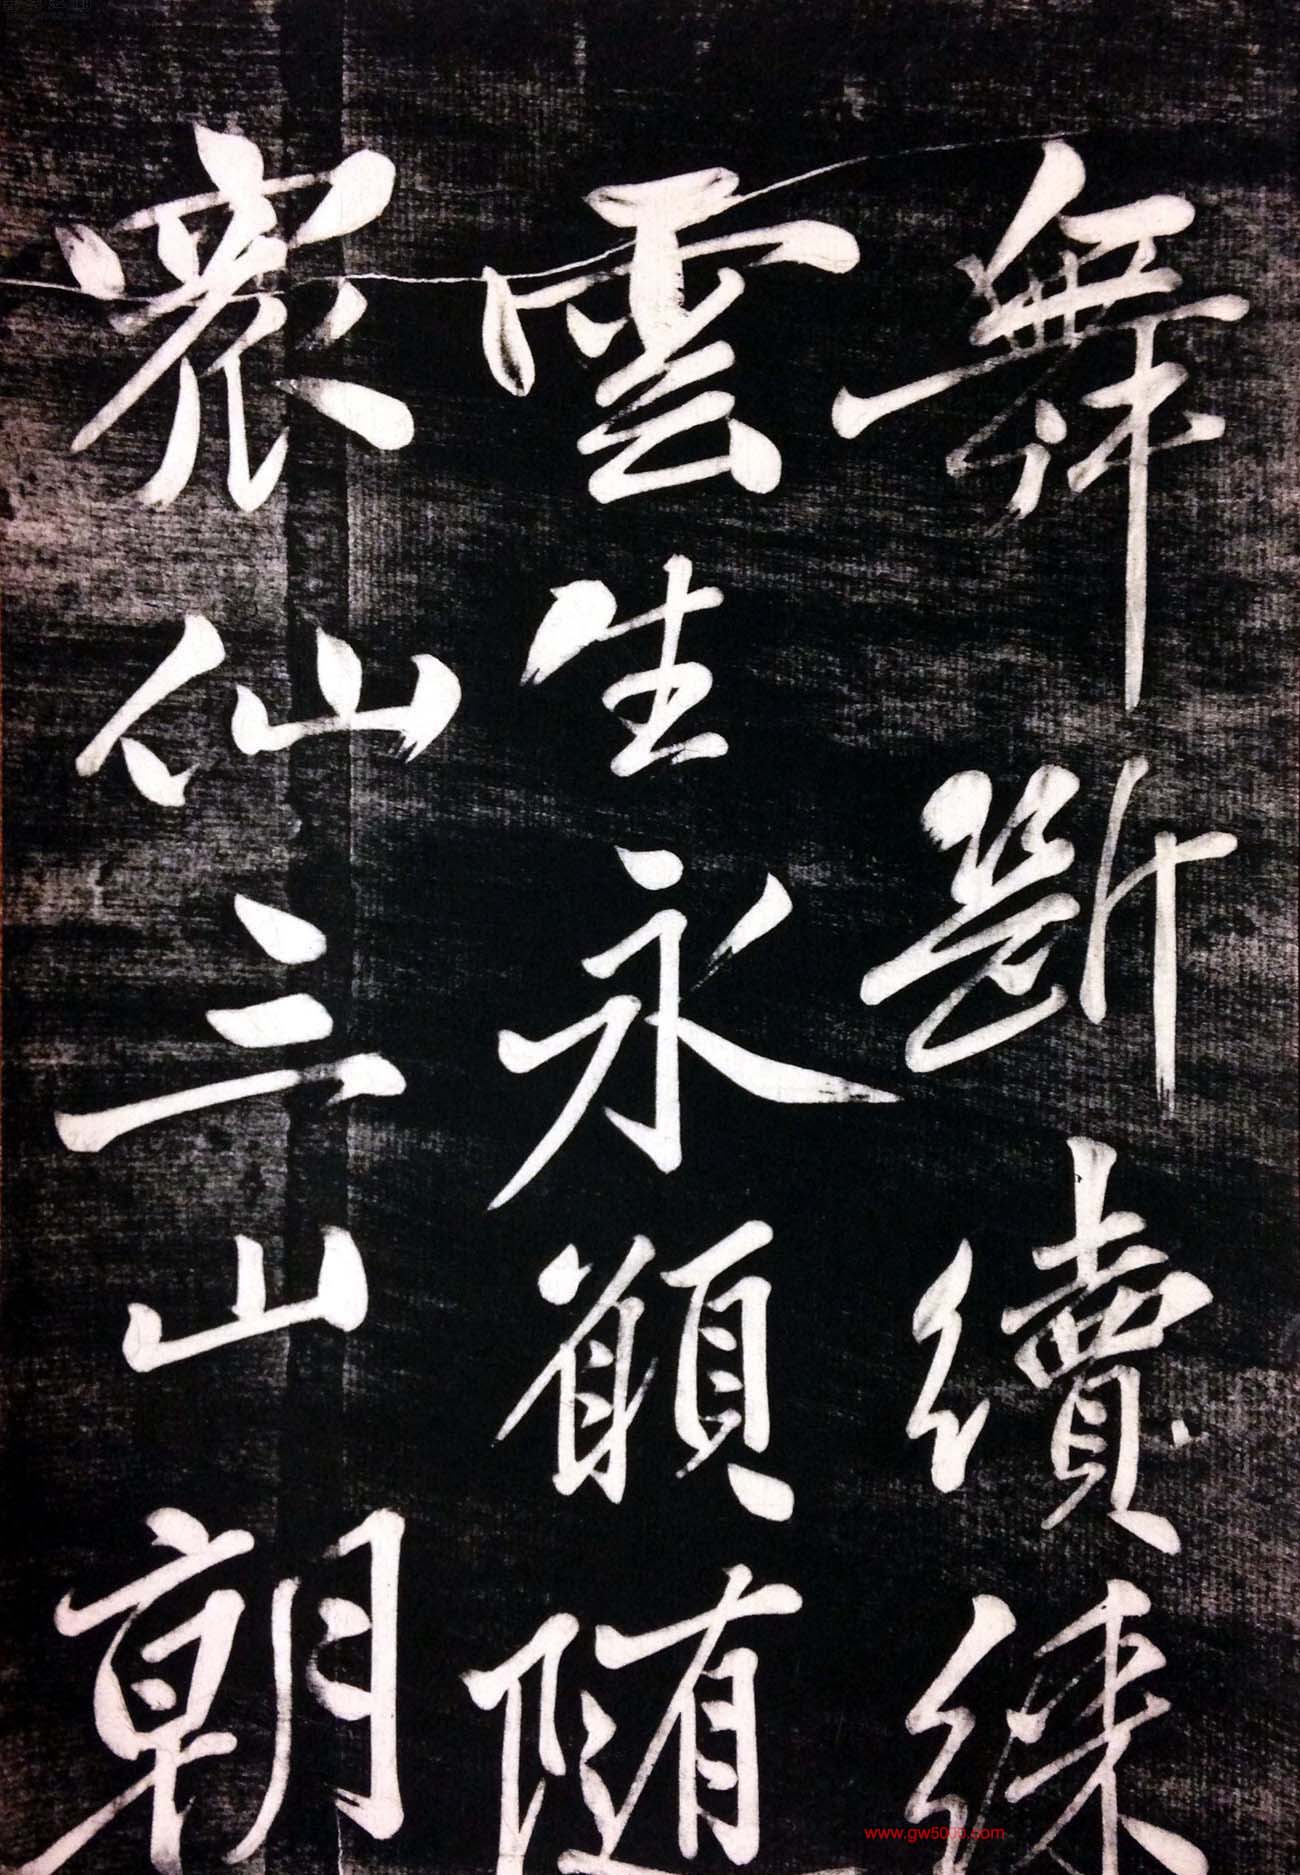 舞斷續綵
雲生永願隨
衆仙三山朝
www.gw5000.com